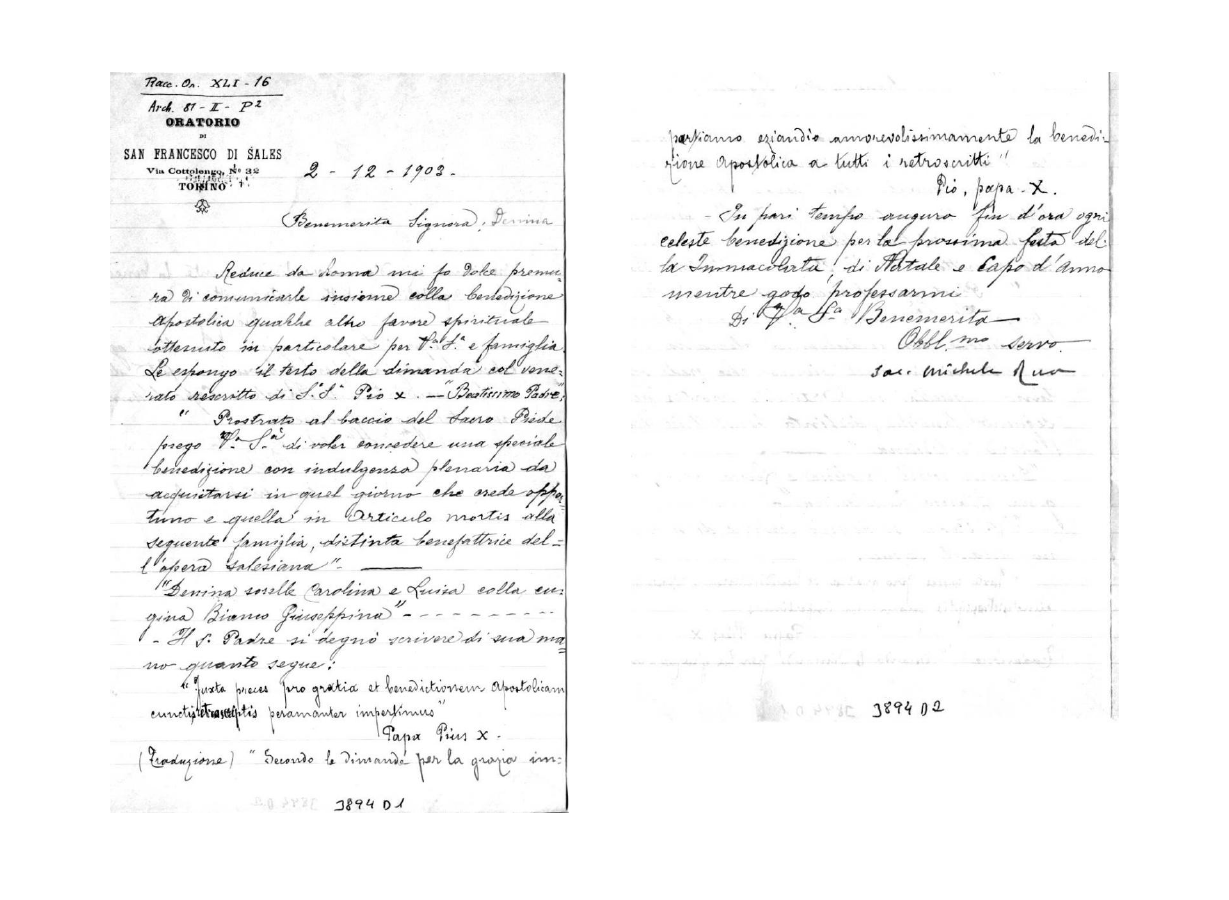 Racc. Or. XLI - 16
Arch. 81 - II - P2
ORATORIO
DI
SAN FRANCESCO DI SALES
Via Cottolengo, Nº 32
TORINO
2 - 12 - 1903 -
Benemerita Signora, Denina
Reduce da Roma mi fo dolce premu-
ra di comunicarle insieme colla benedizione
Apostolica qualche altro favore spirituale
ottenuto in particolare per Va. Sa. e famiglia.
Le espongo il testo della dimanda col vene-
rato rescritto di S.S. Pio X. — "Beatissimo Padre",
" Prostrato al baccio del Sacro Piede
prego Va. Sa. di voler concedere una speciale
benedizione con indulgenza plenaria da
acquistarsi in quel giorno che crede oppor-
tuno e quella in articulo mortis alla
seguente famiglia, distinta benefattrice del=
l'opera salesiana". —
"Denina sorelle Carolina e Luisa colla cu-
gina Bianco Giuseppina" - - - - - - - - -
- Il S. Padre si degnò scrivere di sua ma=
no quanto segue:
"Juxta preces pro gratia et benedictionem Apostolicam
cunctis retroscriptis peramanter impertimus"
Papa Pius X -
(Traduzione) " Secondo le dimande per la grazia im-
3894 D1
partiamo eziandio amorevolissimamente la benedi-
zione Apostolica a tutti i retroscritti"
Pio, papa - X.
- In pari tempo auguro fin d'ora ogni
celeste benedizione per la prossima festa del-
la Immacolata, di Natale e Capo d'anno
mentre godo professarmi
Di Va. Sa. Benemerita
Obbl.mo servo
Sac. Michele Rua
3894 D2